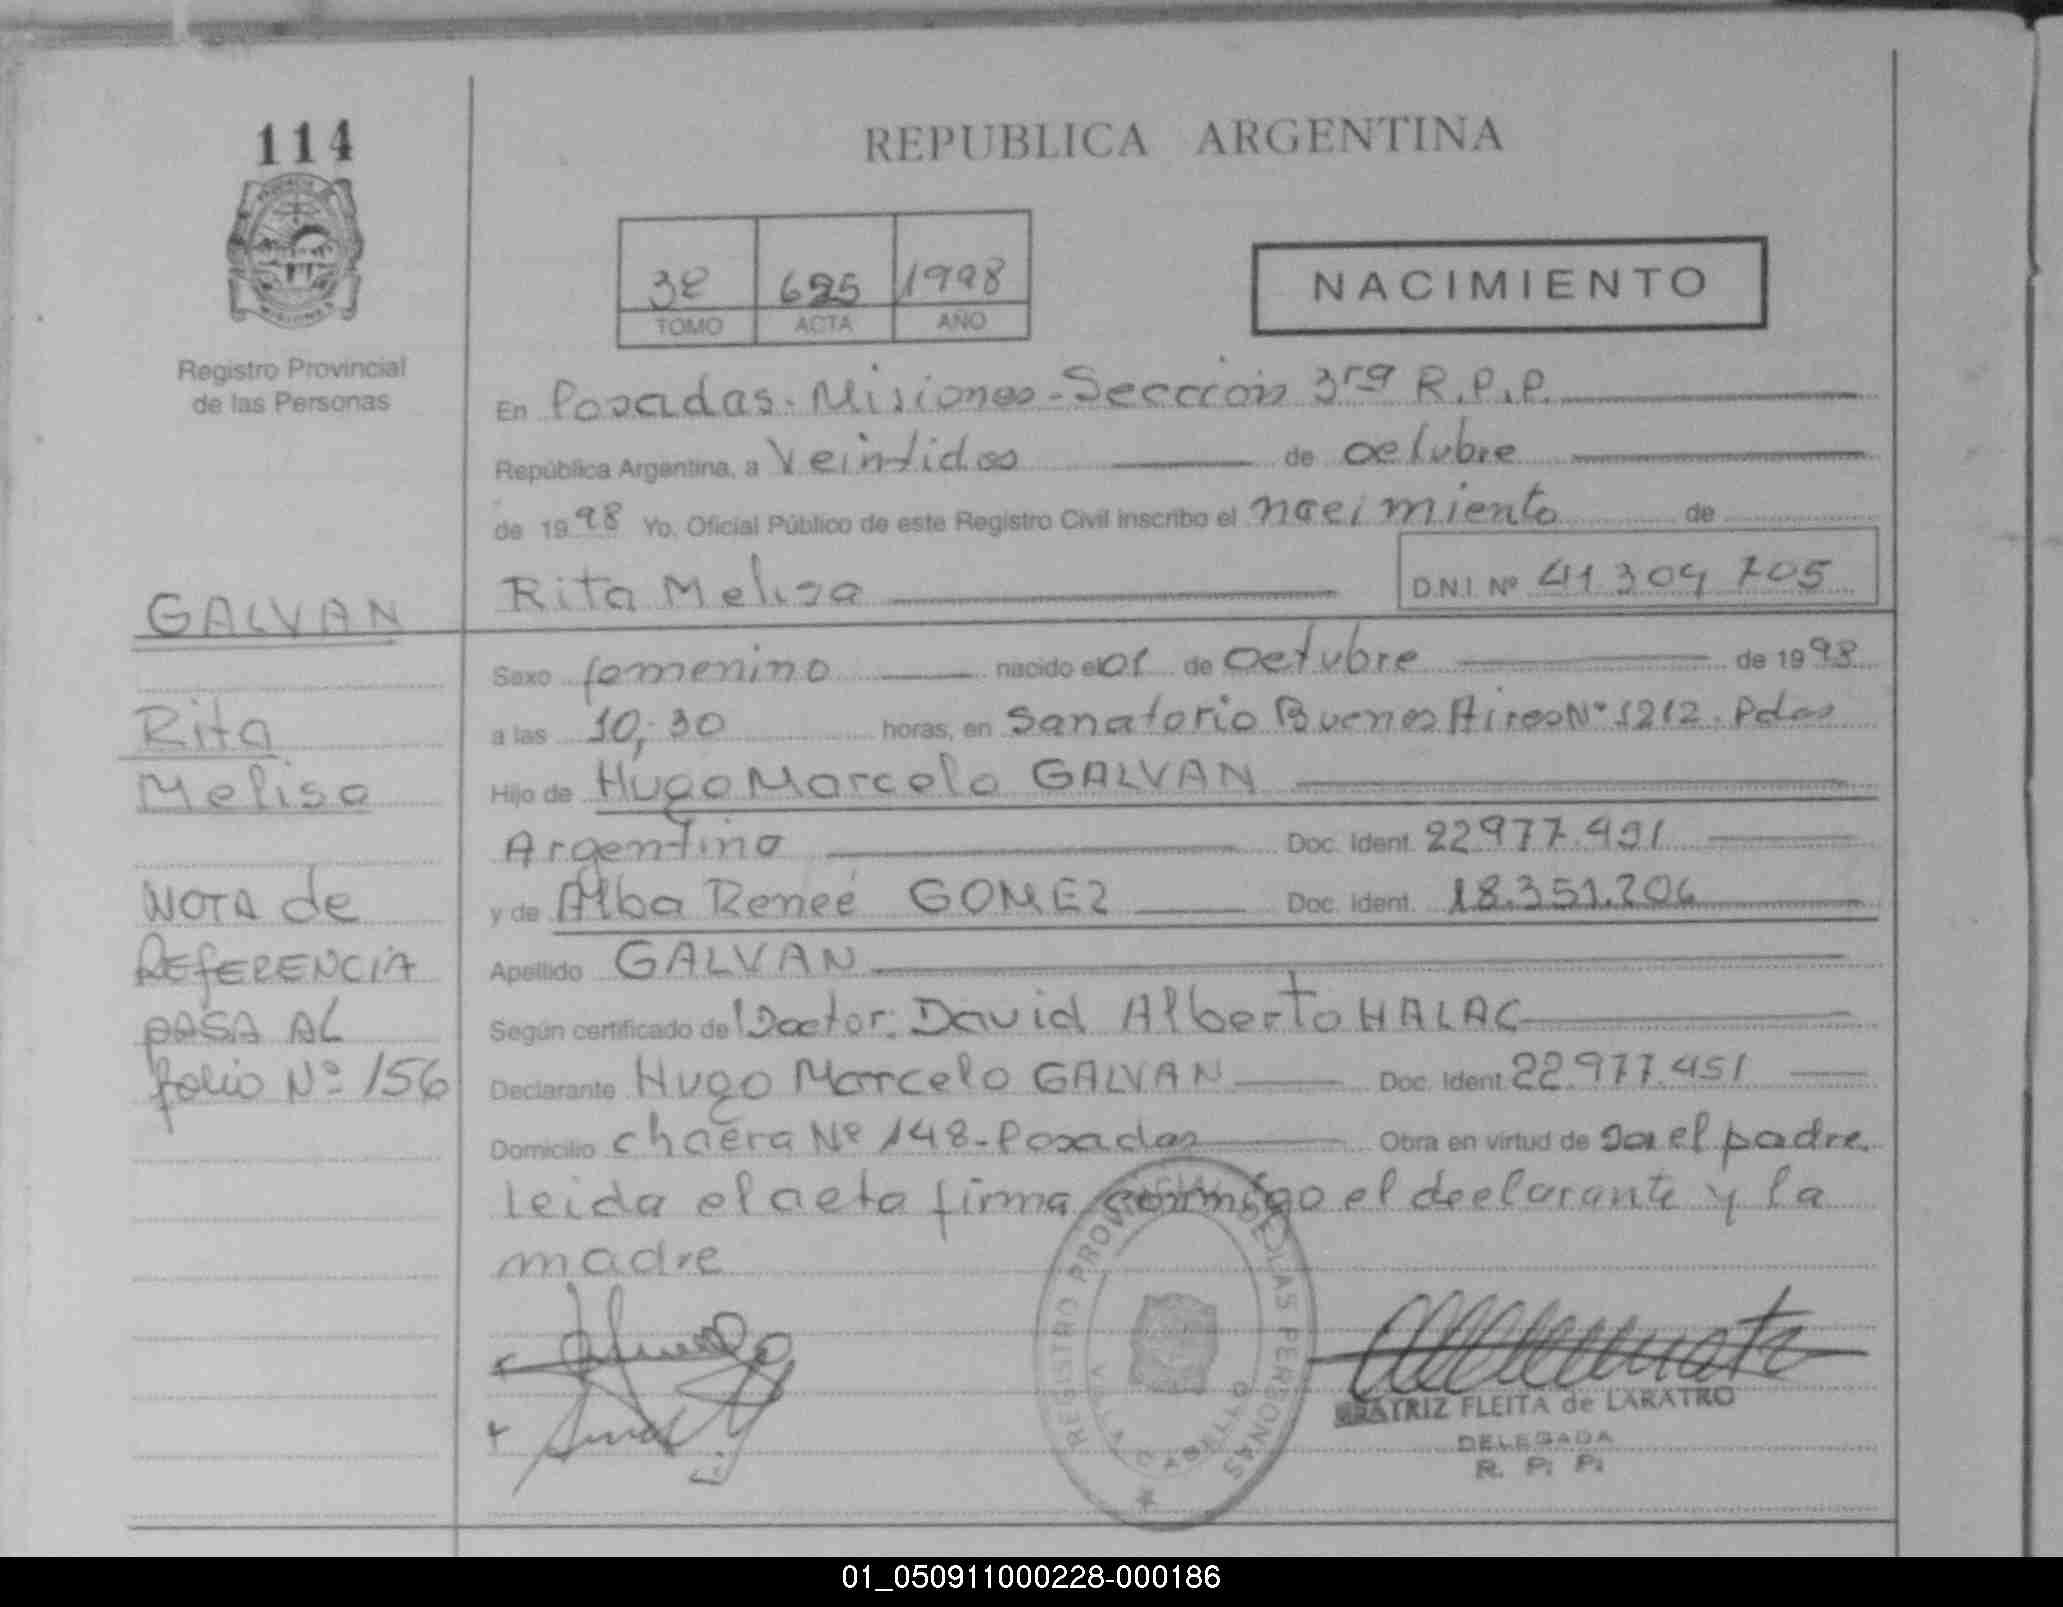 114
REPUBLICA ARGENTINA
3º 625 1998
TOMO ACTA AÑO
NACIMIENTO
Registro Provincial
de las Personas
En Posadas. Misiones - Sección 3ra R.P.P.
República Argentina, a Veintidos de octubre
de 1998 Yo, Oficial Público de este Registro Civil inscribo el nacimiento de
Rita Melisa D.N.I. Nº 41 304 705
GALVAN
Sexo femenino nacido el 01 de Octubre de 1998
Rita
a las 10,30 horas, en Sanatorio Buenos Aires Nº 1212. Pdas
Melisa
Hijo de Hugo Marcelo GALVAN
Argentino Doc. Ident. 22977.451
NOTA de
y de Alba Reneé GOMEZ Doc. Ident. 18.351.206
REfERENCIA
Apellido GALVAN
pASA AL
Según certificado de Doctor: David Alberto HALAC
folio Nº 156
Declarante Hugo Marcelo GALVAN Doc. Ident. 22.977.451
Domicilio chacra Nº 148 - Posadas Obra en virtud de ser el padre
leida el acta firma conmigo el declarante y la
madre
REGISTRO PROVINCIAL DE LAS PERSONAS
BEATRIZ FLEITA de LARATRO
DELEGADA
R. P. P.
01_050911000228-000186